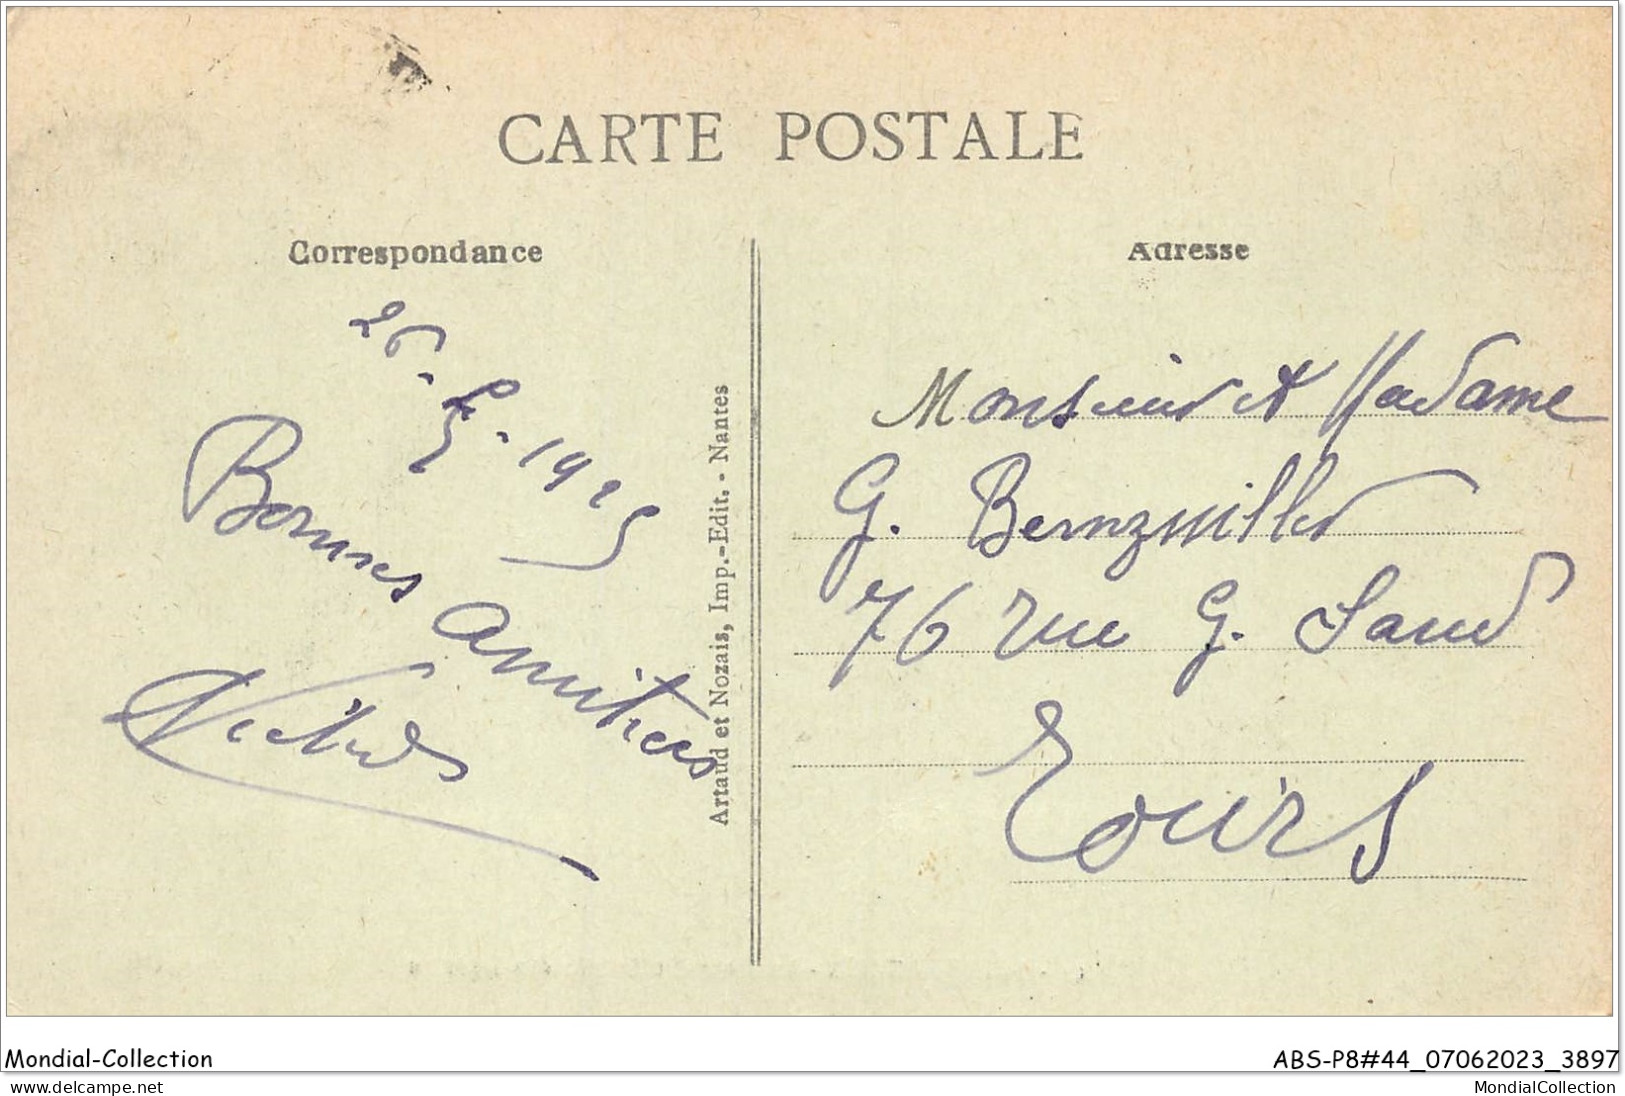 CARTE POSTALE
Correspondance
26 - 5 - 1925
Bonnes Amitiés
Artaud et Nozais, Imp.-Edit. - Nantes
Adresse
Monsieur et Madame
G. Bernzwiller
76 rue G. Sand
Tours
Mondial-Collection
ABS-P8#44_07062023_3897
www.delcampe.net
MondialCollection